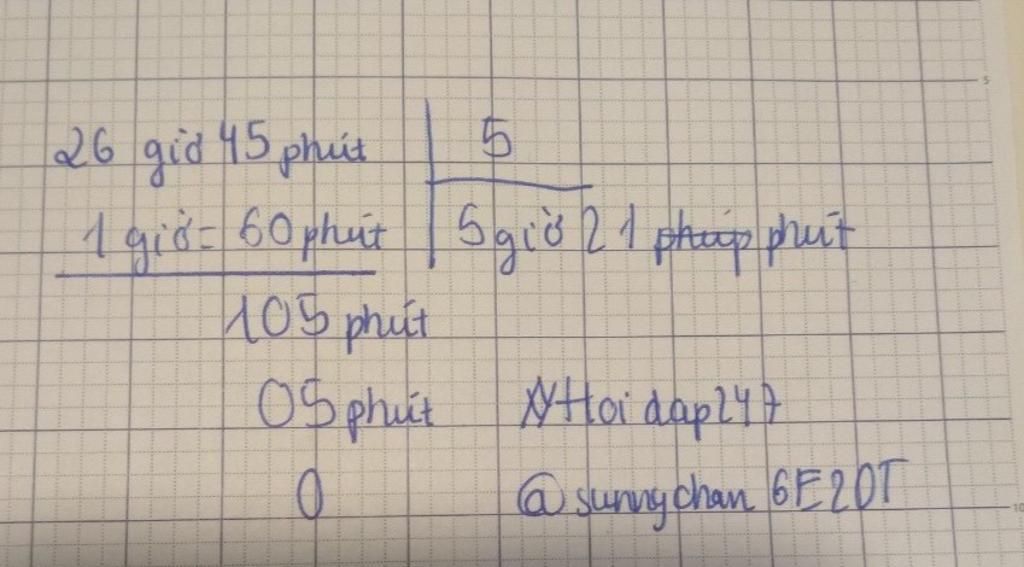 26 giờ 45 phút | 5
1 giờ = 60 phút | 5 giờ 21 phút
105 phút
05 phút Hoi dap247
0 @sunnychan6E20T
5
10